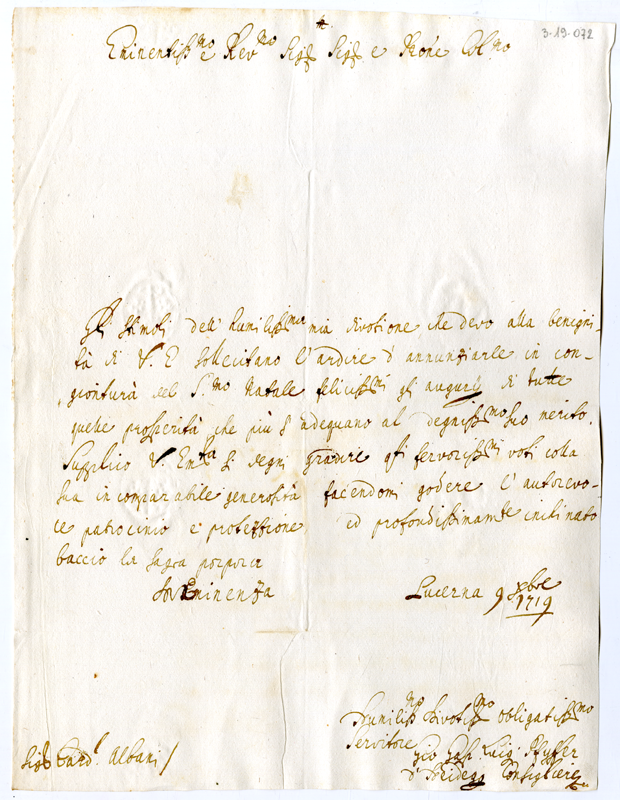 3-19-072
Eminentiss.mo e Rev.mo Sig.r Sig.r e Prone Col.mo
Gli stimoli dell' humiliss.ma mia divotione che devo alla benigni-
tà di V. E sollecitano l'ardire d'annunziarle in con-
giontura del S.mo Natale feliciss.mi gli augurij di tutte
quelle prosperità, che più s' adequano al degniss.mo suo merito.
Supplico V. Em.za si degni gradire q.sti fervoriss.mi voti colla
sua incomparabile generosità facendomi godere l' autorevo-
le patrocinio e protettione, ed profondissimam.te inclinato
baccio la sagra porpora
Eminenza
Lucerna 9 Xbre
1719
Humiliss.mo Divotiss.mo Obligatiss.mo
Servitore
Gio Gasp. Luig. Pfyffer
d' Heidegg Consigliere
Sig.r Card.l Albani /